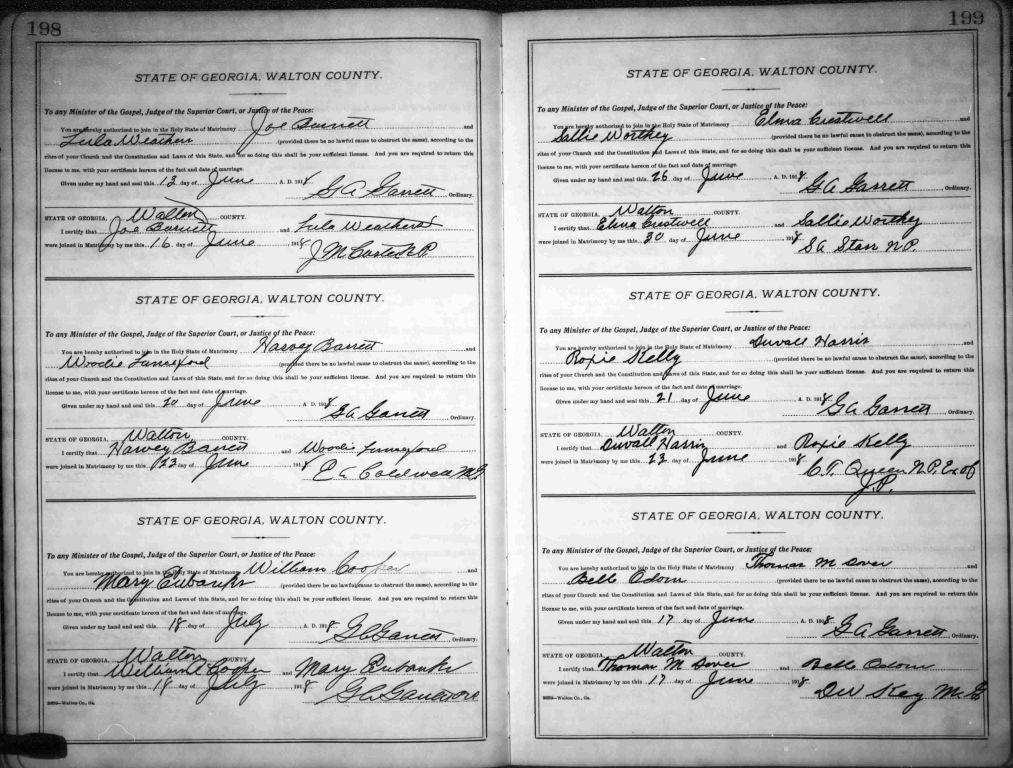 198
STATE OF GEORGIA, WALTON COUNTY.
To any Minister of the Gospel, Judge of the Superior Court, or Justice of the Peace:
You are hereby authorized to join in the Holy State of Matrimony Joe Burnett and
Lula Weathers (provided there be no lawful cause to obstruct the same), according to the
rites of your Church and the Constitution and Laws of this State, and for so doing this shall be your sufficient license. And you are required to return this
license to me, with your certificate hereon of the fact and date of marriage.
Given under my hand and seal this 13 day of June A. D. 1918 G A Garrett Ordinary.
STATE OF GEORGIA, Walton COUNTY.
I certify that Joe Burnett and Lula Weathers
were joined in Matrimony by me this 16 day of June 1918
J M N P
STATE OF GEORGIA, WALTON COUNTY.
To any Minister of the Gospel, Judge of the Superior Court, or Justice of the Peace:
You are hereby authorized to join in the Holy State of Matrimony Harvey Barrett and
Woodie Lunsford (provided there be no lawful cause to obstruct the same), according to the
rites of your Church and the Constitution and Laws of this State, and for so doing this shall be your sufficient license. And you are required to return this
license to me, with your certificate hereon of the fact and date of marriage.
Given under my hand and seal this 20 day of June A. D. 1918 G A Garrett Ordinary.
STATE OF GEORGIA, Walton COUNTY.
I certify that Harvey Barrett and Woodie
were joined in Matrimony by me this 22 day of June 1918 E C Coldwell M.G.
STATE OF GEORGIA, WALTON COUNTY.
To any Minister of the Gospel, Judge of the Superior Court, or Justice of the Peace:
You are hereby authorized to join in the Holy State of Matrimony William Cooper and
Mary Eubanks (provided there be no lawful cause to obstruct the same), according to the
rites of your Church and the Constitution and Laws of this State, and for so doing this shall be your sufficient license. And you are required to return this
license to me, with your certificate hereon of the fact and date of marriage.
Given under my hand and seal this 18 day of July A. D. 1918 Garrett Ordinary.
STATE OF GEORGIA, Walton COUNTY.
I certify that William Cooper and Mary Eubanks
were joined in Matrimony by me this 18 day of July 1918
Walton Co., Ga.
199
STATE OF GEORGIA, WALTON COUNTY.
To any Minister of the Gospel, Judge of the Superior Court, or Justice of the Peace:
You are hereby authorized to join in the Holy State of Matrimony Elma Crestwell and
Sallie Worthey (provided there be no lawful cause to obstruct the same), according to the
rites of your Church and the Constitution and Laws of this State, and for so doing this shall be your sufficient license. And you are required to return this
license to me, with your certificate hereon of the fact and date of marriage.
Given under my hand and seal this 26 day of June A. D. 1918 G A Garrett Ordinary.
STATE OF GEORGIA, Walton COUNTY.
I certify that Elma Crestwell and Sallie Worthey
were joined in Matrimony by me this 30 day of June 1918 S A Starr N.P.
STATE OF GEORGIA, WALTON COUNTY.
To any Minister of the Gospel, Judge of the Superior Court, or Justice of the Peace:
You are hereby authorized to join in the Holy State of Matrimony Duvall Harris and
Roxie Kelly (provided there be no lawful cause to obstruct the same), according to the
rites of your Church and the Constitution and Laws of this State, and for so doing this shall be your sufficient license. And you are required to return this
license to me, with your certificate hereon of the fact and date of marriage.
Given under my hand and seal this 21 day of June A. D. 1918 G A Garrett Ordinary.
STATE OF GEORGIA, Walton COUNTY.
I certify that Duvall Harris and Roxie Kelly
were joined in Matrimony by me this 23 day of June 1918 C.T. Queen N.P. Ex of
J.P.
STATE OF GEORGIA, WALTON COUNTY.
To any Minister of the Gospel, Judge of the Superior Court, or Justice of the Peace:
You are hereby authorized to join in the Holy State of Matrimony Thomas M Dover and
Belle Odom (provided there be no lawful cause to obstruct the same), according to the
rites of your Church and the Constitution and Laws of this State, and for so doing this shall be your sufficient license. And you are required to return this
license to me, with your certificate hereon of the fact and date of marriage.
Given under my hand and seal this 17 day of June A. D. 1918 G A Garrett Ordinary.
STATE OF GEORGIA, Walton COUNTY.
I certify that Thomas M Dover and Belle Odom
were joined in Matrimony by me this 17 day of June 1918 Key M. G
Walton Co., Ga.